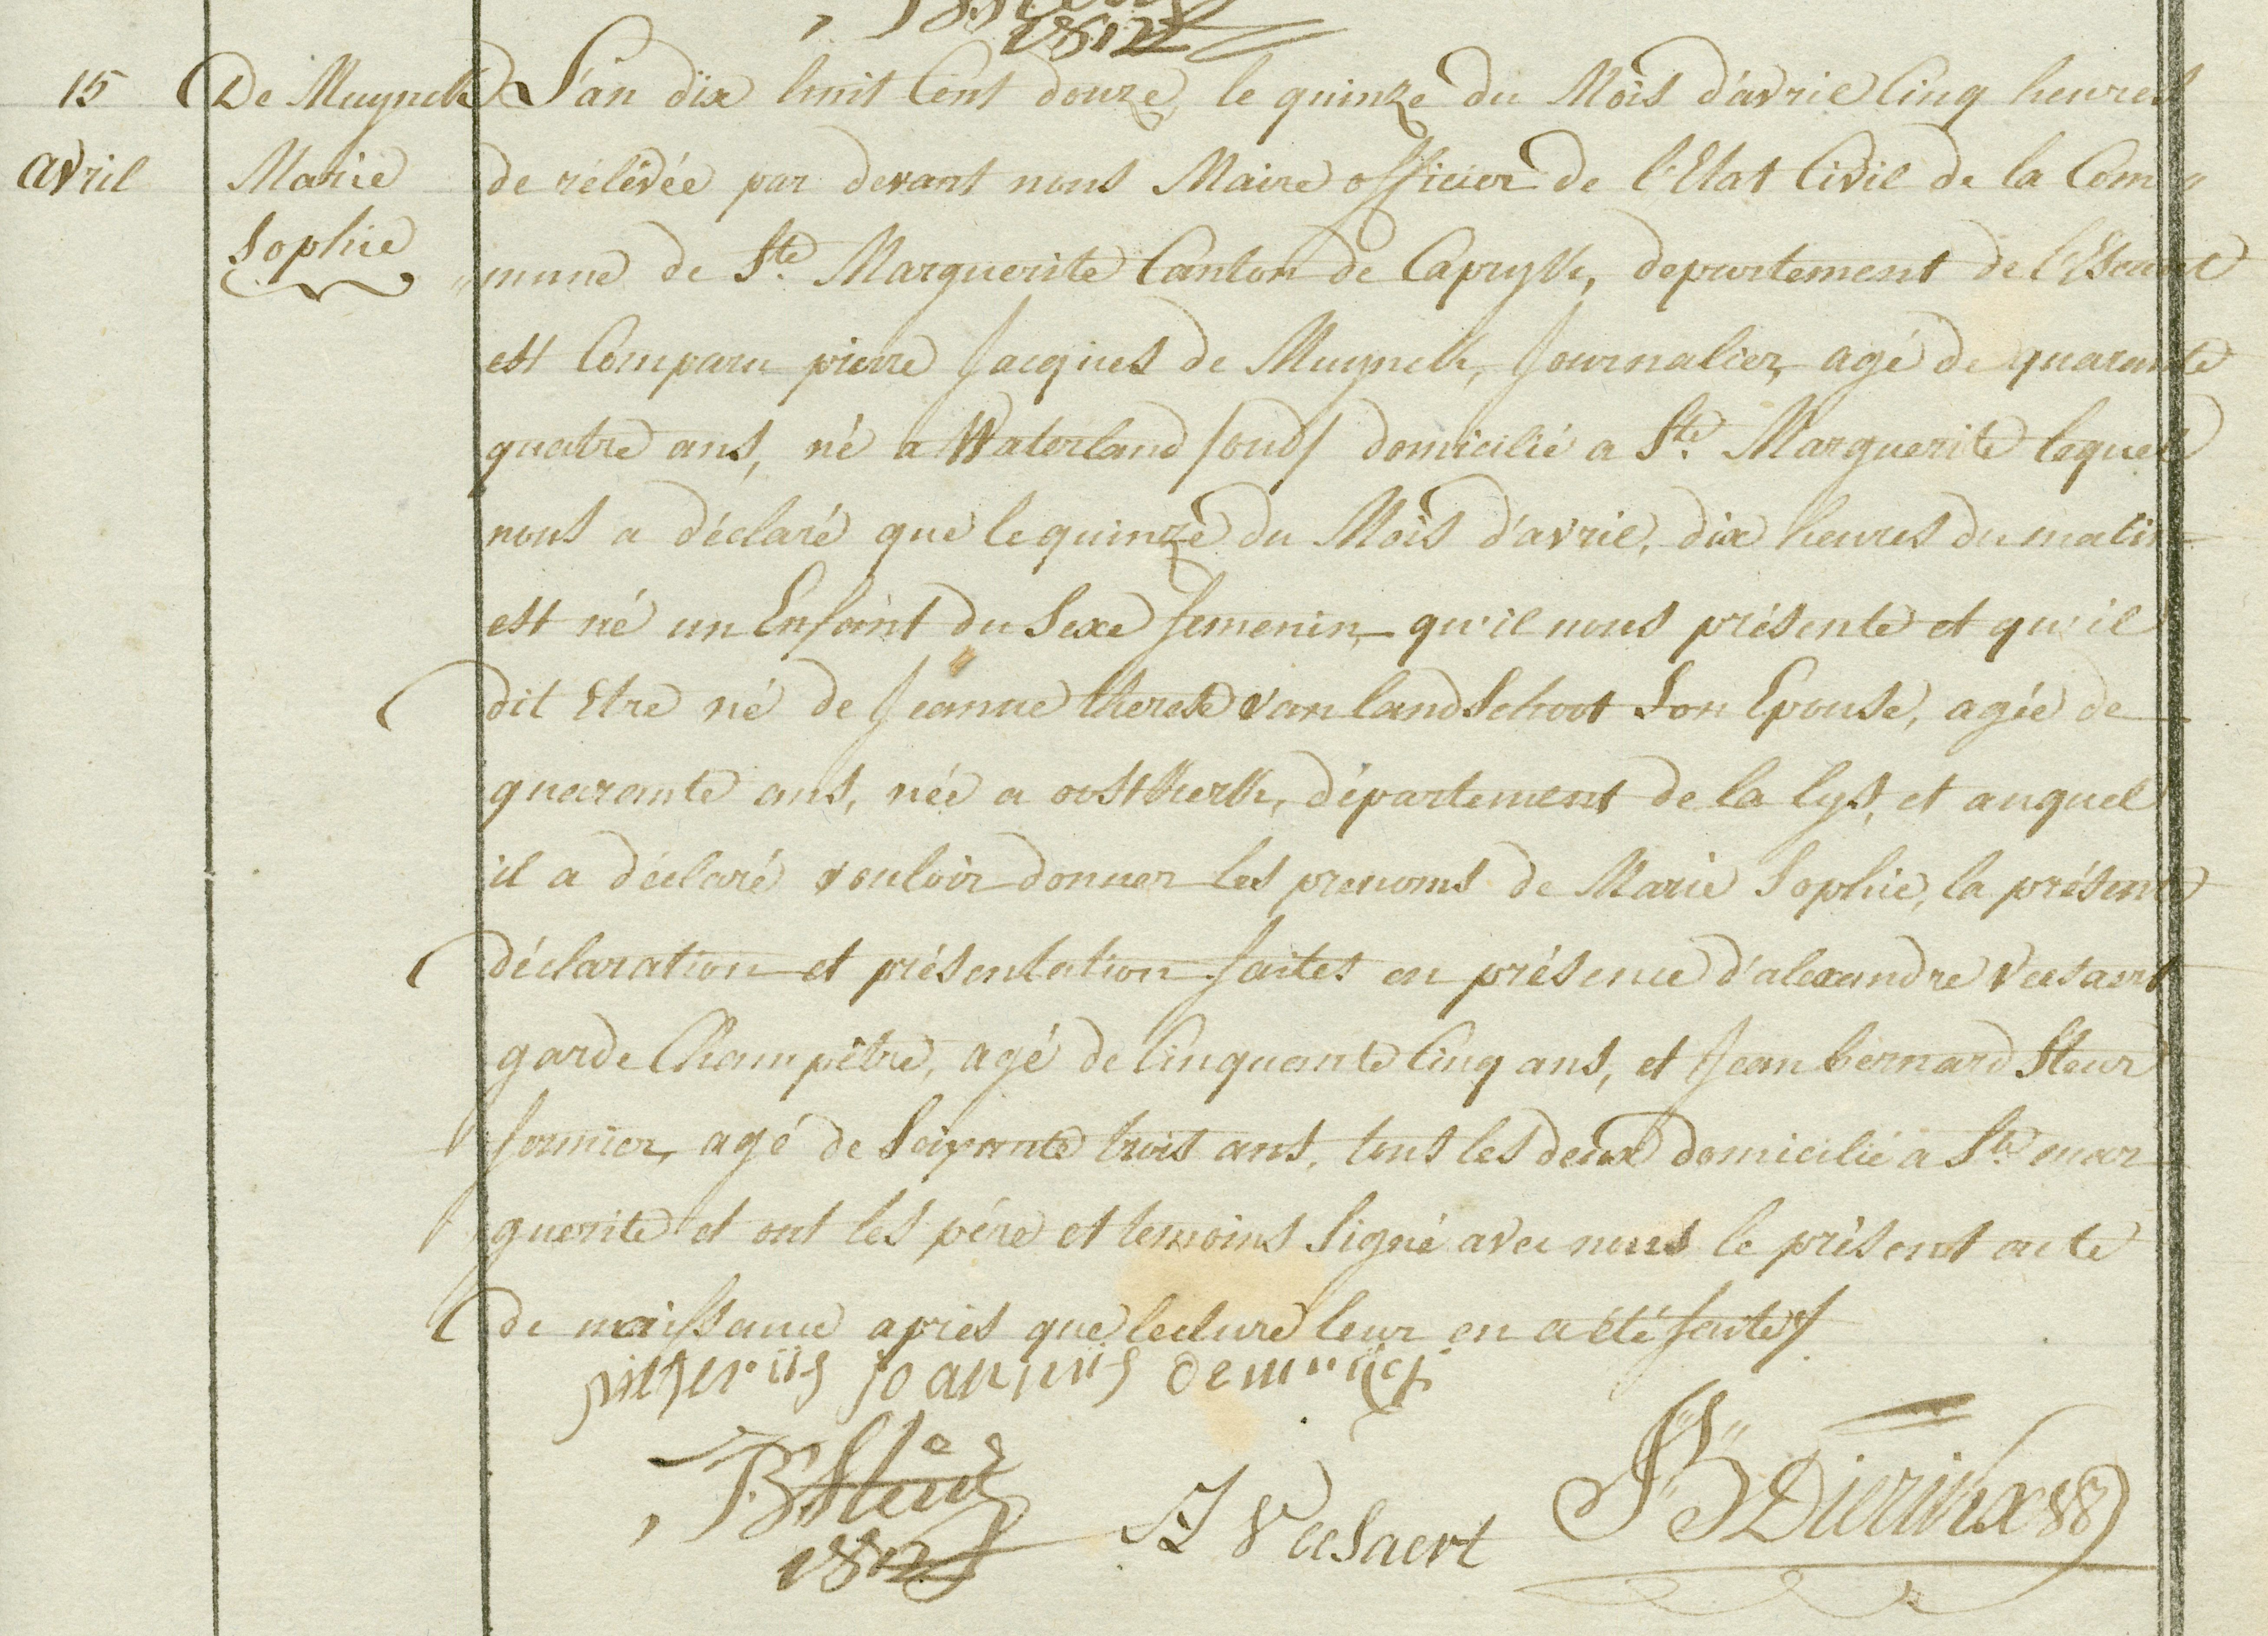 1812
15
avril
De Muynck
Marie
Sophie
L'an dix huit Cent douze, le quinze du Mois d'avril Cinq heures
de rélévée par devant nous Maire officier de l'Etat Civil de la Com
"mune de Ste Marguerite Canton de Capryke, departement de l'Escaut
est Comparu pierre Jacques de Muynck, Journalier, agé de quarante
quatre ans, né a Waterland /oud/ domicilié a Ste Marguerite lequel
nous a déclaré que le quinze du Mois d'avril, dix heures du matin
est né un Enfant du Sexe femenin, qu'il nous présente et qu'il
dit Etre né de Jeanne therese van landschoot Son Epouse, agée de
quarante ans, née a oostkerke, département de la lys, et auquel
il a déclaré vouloir donner les prenoms de Marie Sophie, la présente
déclaration et présentation faites en présence d'alexandre Veesaert
garde Champêtre, agé de Cinquante Cinq ans, et Jean bernard Steur
fermier, agé de Soixante trois ans, tous les deux domicilié a Ste mar
guerite et ont les pére et temoins Signé avec nous le présent acte
de naissance apres que lecture leur en a été faite/.
JB Steur
1812
Veesaert
JB Dierickx